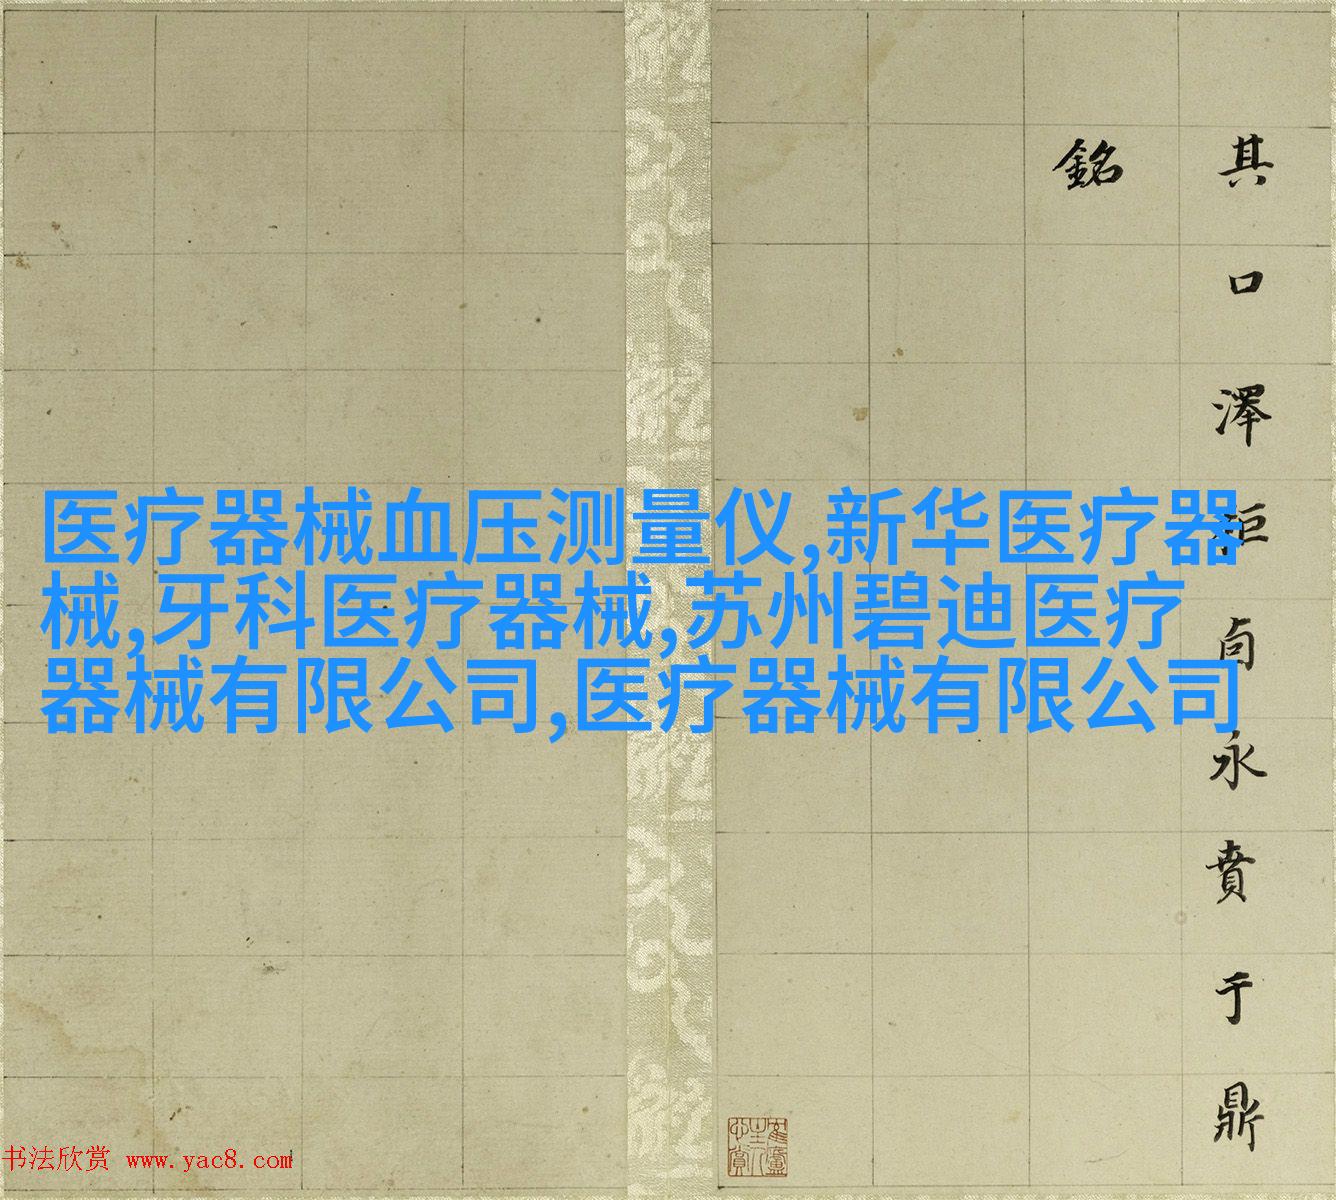 其口澤秬卣永賁于鼎
銘
医疗器械血压测量仪,新华医疗器
械,牙科医疗器械,苏州碧迪医疗
器械有限公司,医疗器械有限公司
书法欣赏 www.yac8.com